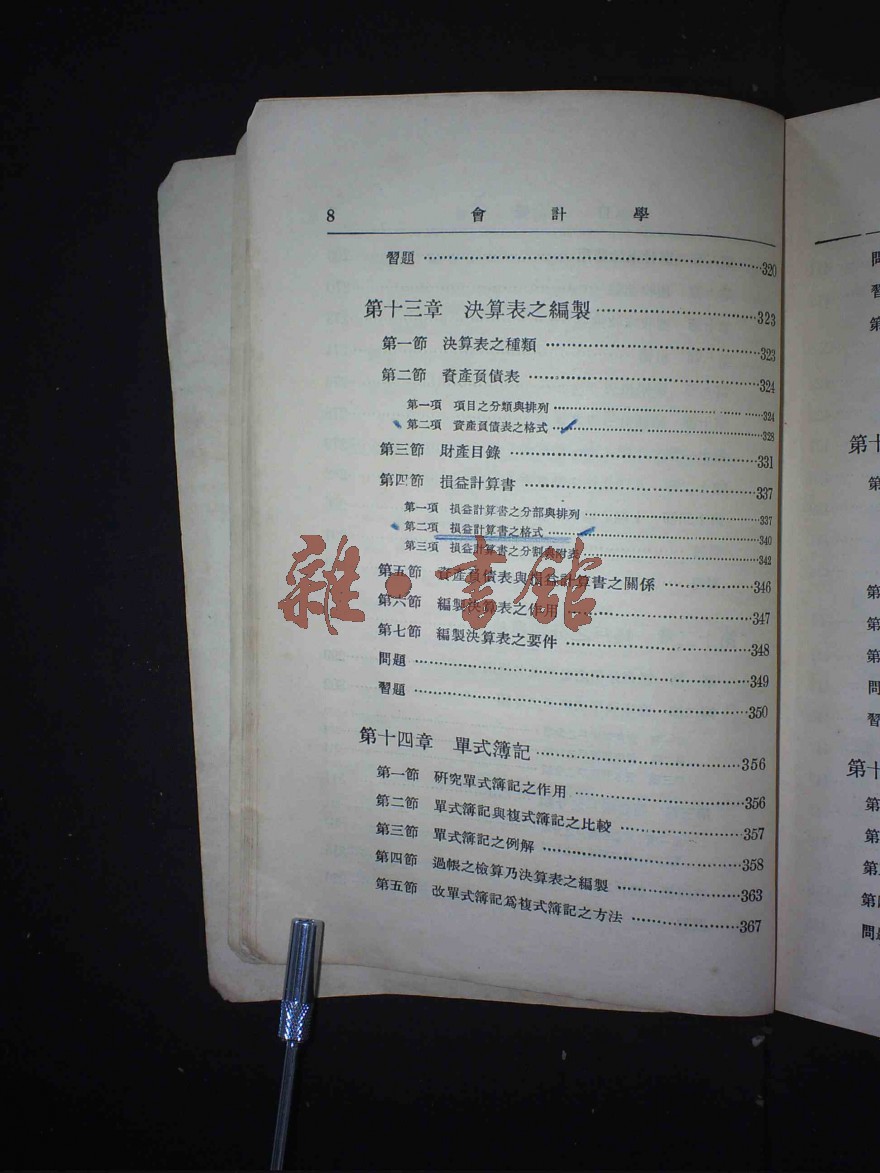 8 會計學
習題 320
第十三章 決算表之編製 323
第一節 決算表之種類 323
第二節 資產負債表 324
第一項 項目之分類與排列 324
第二項 資產負債表之格式 328
第三節 財產目錄 331
第四節 損益計算書 337
第一項 損益計算書之分部與排列 337
第二項 損益計算書之格式 340
第三項 損益計算書之分割與附表 342
第五節 資產負債表與損益計算書之關係 346
第六節 編製決算表之作用 347
第七節 編製決算表之要件 348
問題 349
習題 350
第十四章 單式簿記 356
第一節 研究單式簿記之作用 356
第二節 單式簿記與複式簿記之比較 357
第三節 單式簿記之例解 358
第四節 過帳之檢算乃決算表之編製 363
第五節 改單式簿記爲複式簿記之方法 367
雜·書館